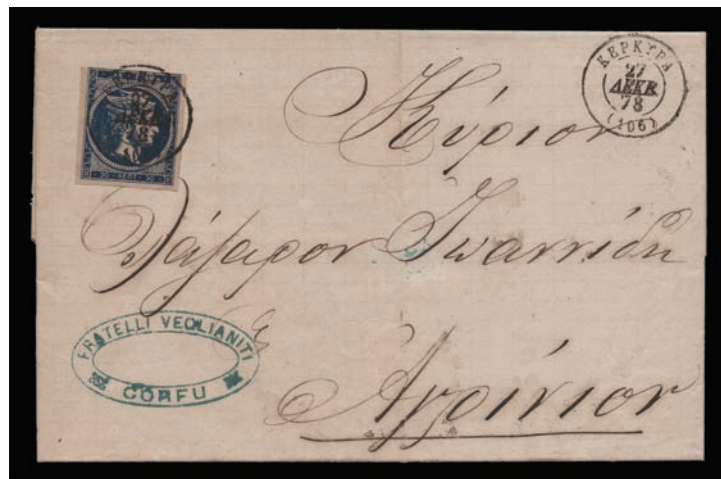 ΚΕΡΚΥΡΑ
27
ΔΕΚΒ.
78
(106)
27
ΔΕΚΒ.
78
Κύριον
Λάζαρον Ἰωαννίδη
FRATELLI VEGLIANITI
CORFU
Ἀγρίνιον